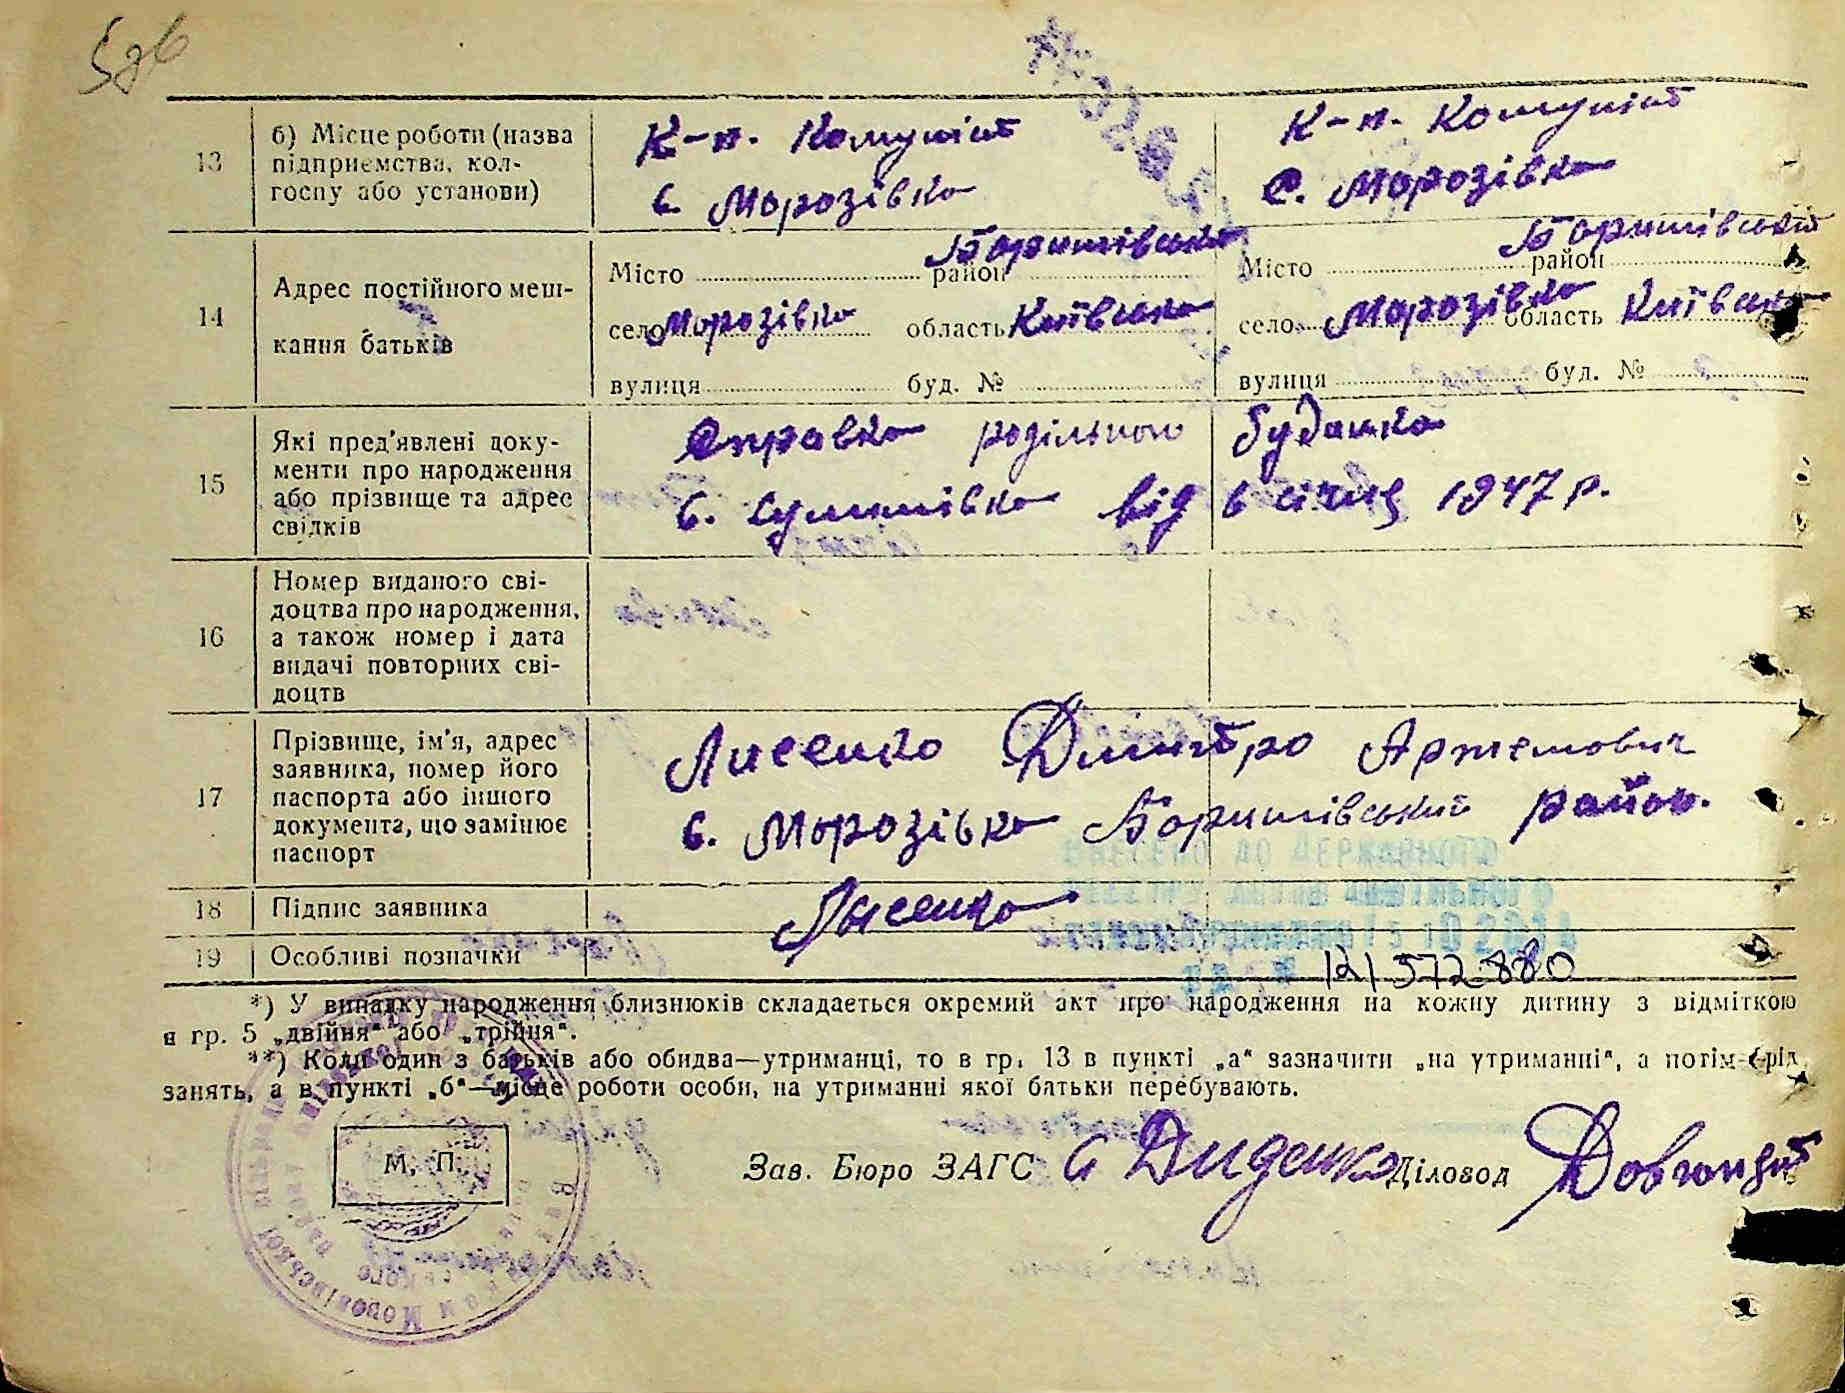 13
б) Місце роботи (назва
підприємства, кол-
госпу або установи)
К-п. Комуніст
с. Морозівка
К-п. Комуніст
с. Морозівка
14
Адрес постійного меш-
кання батьків
Місто район Баришівський
село Морозівка область Київська
вулиця буд. №
Місто район Баришівський
село Морозівка область Київська
вулиця буд. №
15
Які пред'явлені доку-
менти про народження
або прізвище та адрес
свідків
Справка родільного будинка
с. Сулимівка від 6 січня 1947 р.
16
Номер виданого сві-
доцтва про народження,
а також номер і дата
видачі повторних сві-
доцтв
17
Прізвище, ім'я, адрес
заявника, номер його
паспорта або іншого
документа, що замінює
паспорт
Лисенко Дмитро Артемович
с. Морозівка Баришівський район.
18
Підпис заявника
Лысенко
19
Особливі позначки
ВНЕСЕНО ДО ДЕРЖАВНОГО
121572880
*) У випадку народження близнюків складається окремий акт про народження на кожну дитину з відміткою
в гр. 5 „двійня" або „трійня".
**) Коли один з батьків або обидва—утриманці, то в гр. 13 в пункті „а" зазначити „на утриманні", а потім рід
занять, а в пункті „б"—місце роботи особи, на утриманні якої батьки перебувають.
М. П.
Зав. Бюро ЗАГС Диденко Діловод